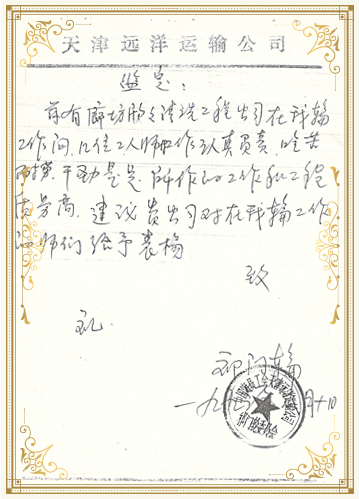 天津远洋运输公司
鉴定:
兹有廊坊 清洗工程公司在我轮
工作间,几位工人师 工作认真负责,吃苦
耐劳,干劲 足,所作的工作和工程
质 高,建议贵公司对在我轮工作
的师们给予表扬
致
礼
轮
一九九 月十 日